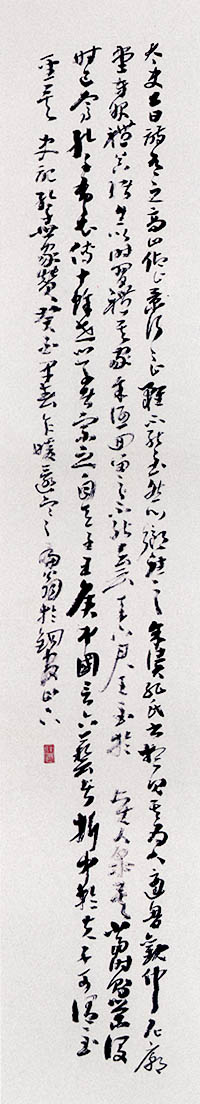 太史公曰詩有之高山仰止景行行止雖不能至然心鄉往之余讀孔氏書想見其為人適魯觀仲尼廟
堂車服禮器諸生以時習禮其家余低回留之不能去云天下君王至於賢人眾矣當時則榮沒
則已焉孔子布衣傳十餘世學者宗之自天子王侯中國言六藝者折中於夫子可謂至
聖矣 史記孔子世家贊 癸早春乍暖還寒翁於山下